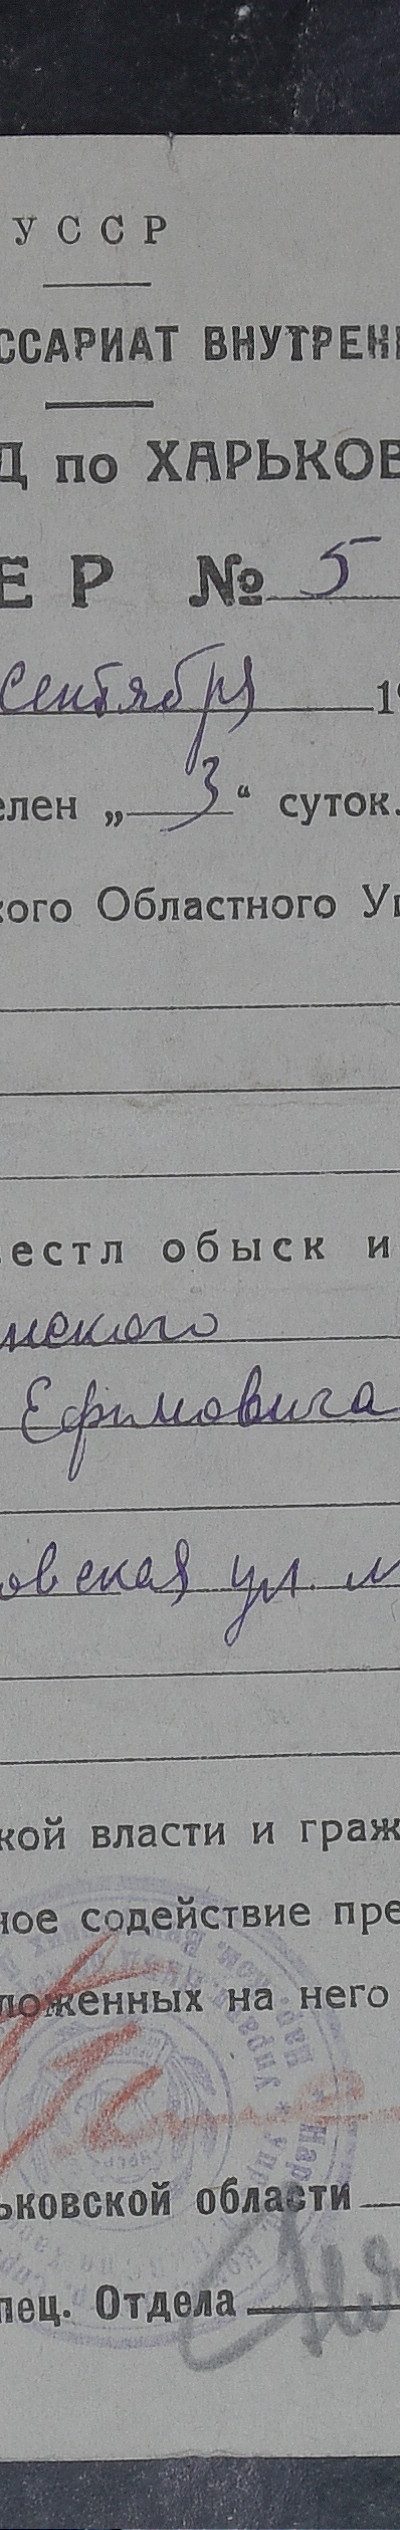 УССР
ССАРИАТ ВНУТРЕНН
Д по ХАРЬКОВ
ЕР № 5
Сентября 19
елен „3“ суток.
кого Областного Уп
вестл обыск и
нского
Ефимовича
овская ул. м
кой власти и граж
ное содействие пре
ложенных на него
ьковской области
пец. Отдела